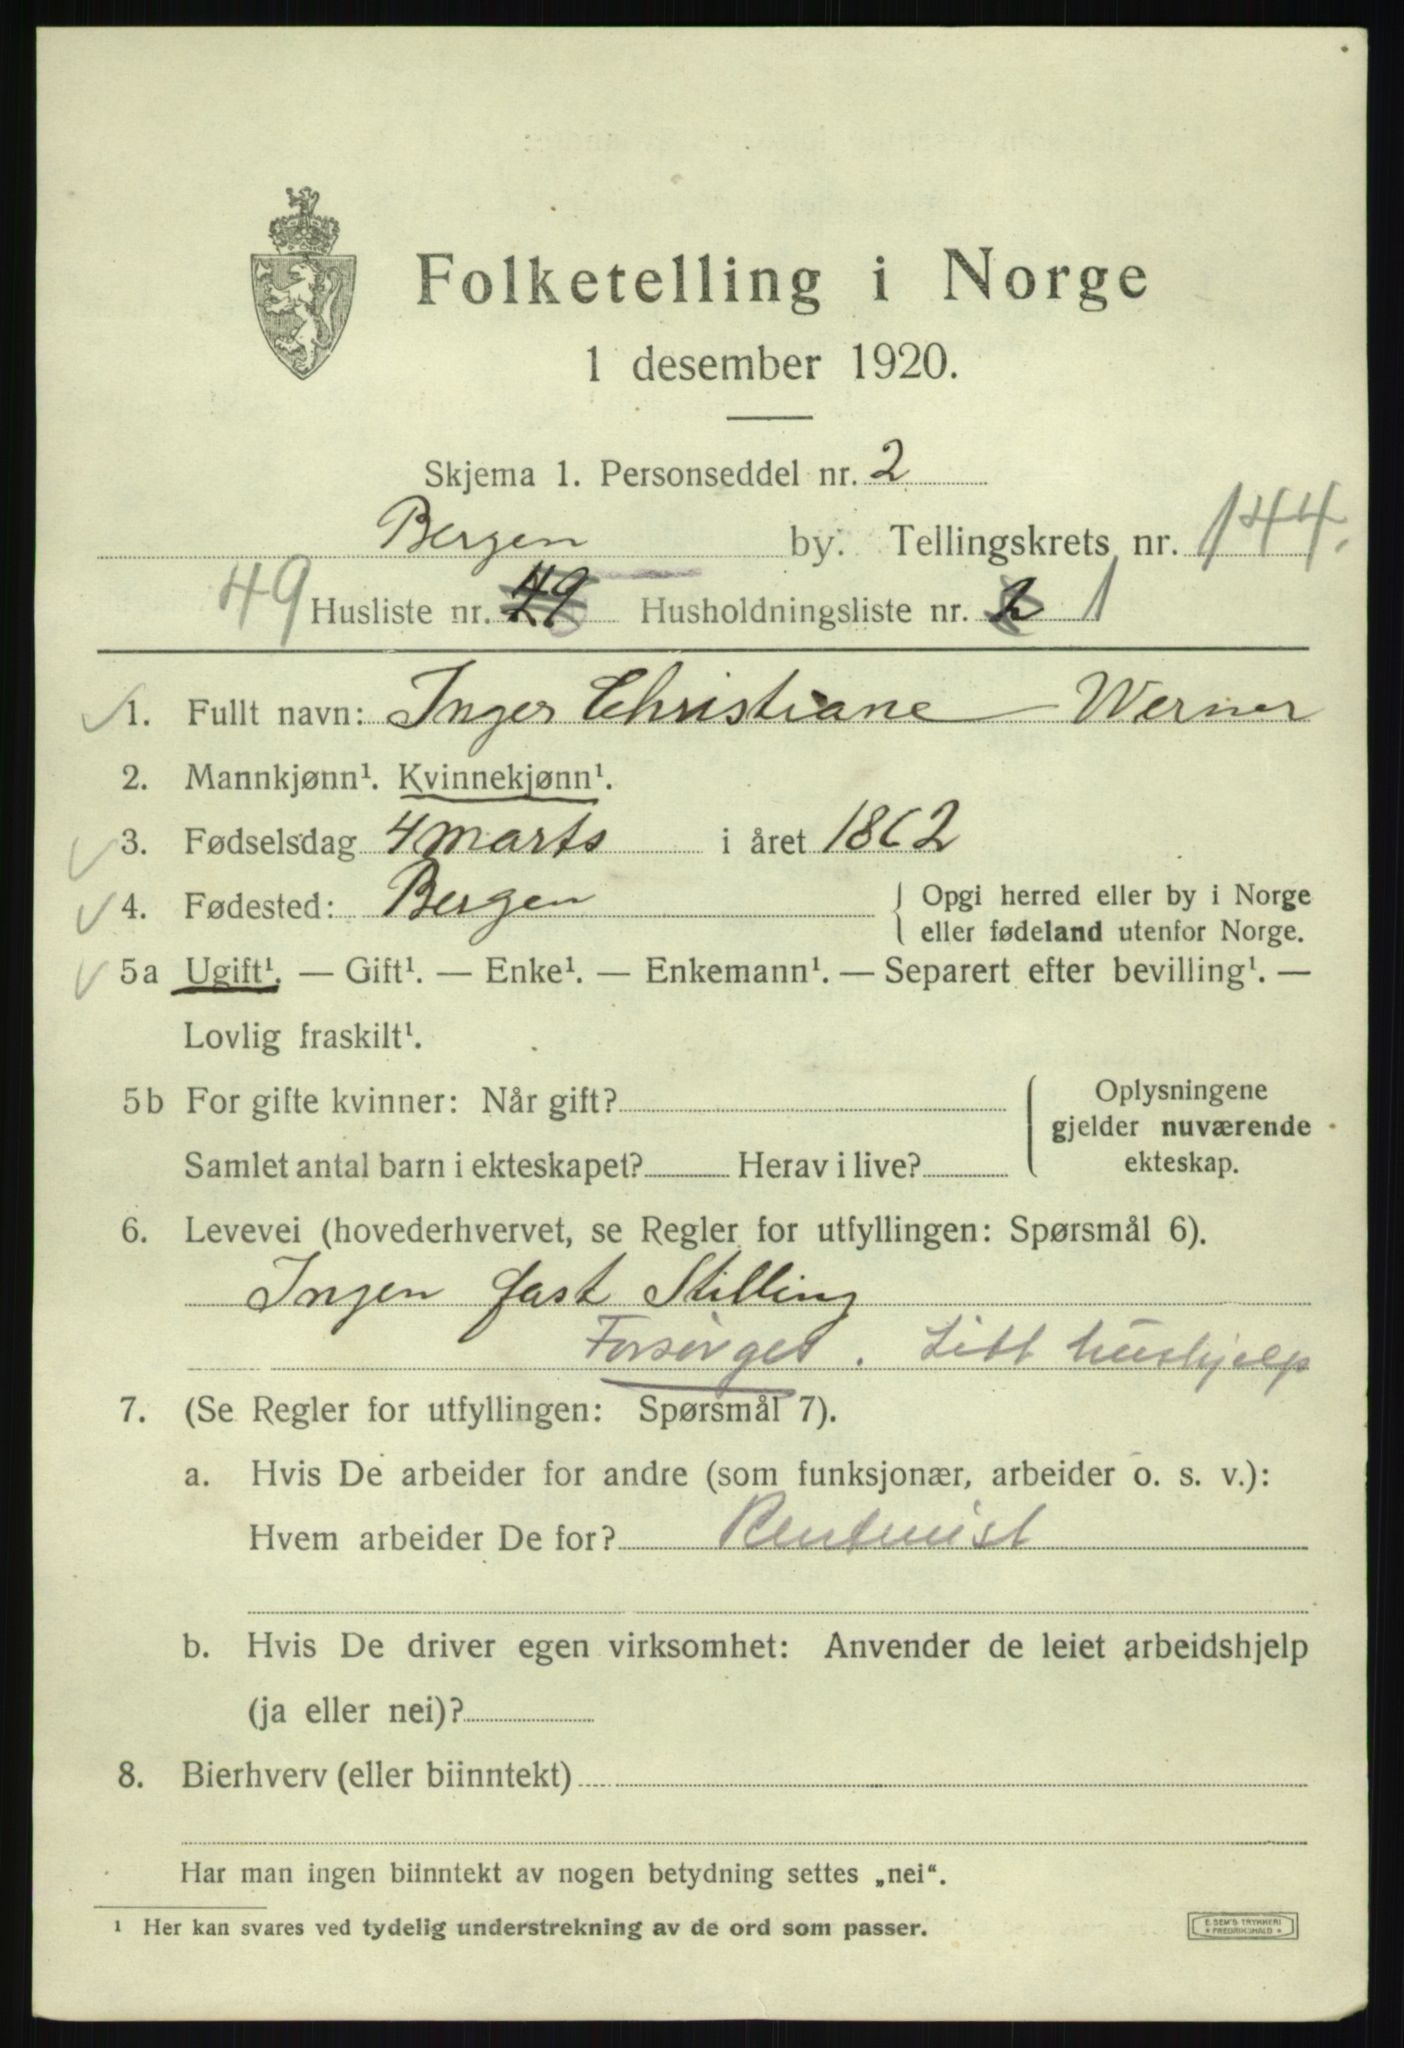 Folketelling i Norge
1 desember 1920.
Skjema 1. Personseddel nr. 2
Bergen by. Tellingskrets nr. 144.
49 Husliste nr. 49 Husholdningsliste nr. 2 1
1. Fullt navn: Inger Christiane Werner
2. Mannkjønn¹. Kvinnekjønn¹.
3. Fødselsdag 4 marts i året 1862
4. Fødested: Bergen { Opgi herred eller by i Norge
eller fødeland utenfor Norge.
5a Ugift¹. — Gift¹. — Enke¹. — Enkemann¹. — Separert efter bevilling¹. —
Lovlig fraskilt¹.
5b For gifte kvinner: Når gift? Oplysningene
gjelder nuværende
Samlet antal barn i ekteskapet? Herav i live? ekteskap.
6. Levevei (hovederhvervet, se Regler for utfyllingen: Spørsmål 6).
Ingen fast Stilling
Forsørges. Litt hushjelp
7. (Se Regler for utfyllingen: Spørsmål 7).
a. Hvis De arbeider for andre (som funksjonær, arbeider o. s. v.):
Hvem arbeider De for?
b. Hvis De driver egen virksomhet: Anvender de leiet arbeidshjelp
(ja eller nei)?
8. Bierhverv (eller biinntekt)
Har man ingen biinntekt av nogen betydning settes „nei“.
¹ Her kan svares ved tydelig understrekning av de ord som passer.
E. SEM'S TRYKKERI
* FREDRIKSHALD *